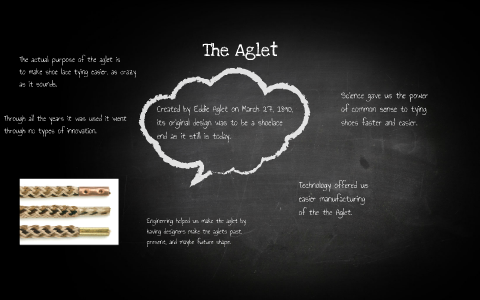 The Aglet
The actual purpose of the aglet is
to make shoe lace tying easier, as crazy
as it sounds.
Created by Eddie Aglet on March 27, 1890,
its original design was to be a shoelace
end as it still is today.
Science gave us the power
of common sense to tying
shoes faster and easier.
Through all the years it was used it went
through no types of innovation.
Technology offered us
easier manufacturing
of the the Aglet.
Engineering helped us make the aglet by
having designers make the aglets past,
present, and maybe future shape.